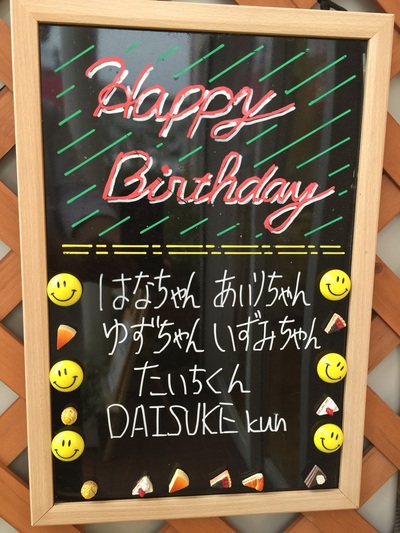 Happy
Birthday
はなちゃん あいりちゃん
ゆずちゃん いずみちゃん
たいちくん
DAISUKE kun